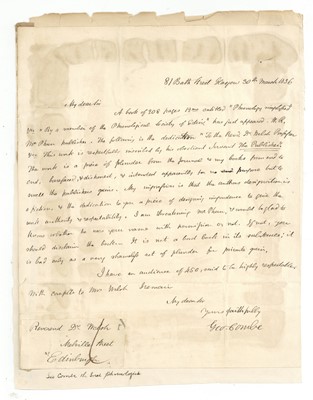 81 Bath Street Glasgow 30th March 1836.
My dear Sir A book of 308 pages 12mo entitled "Phrenology simplified
&c &c by a member of the Phrenological Society of Edinr" has just appeared. W.R.
McPhun publisher. The following is the dedication "To the Revd Dr Welsh Professor
&c &c This work is respectfully inscribed by his obedient Servant The Publisher".
The work is a piece of plunder from the Journals & my books from end to
end, & intended apparently for no purpose but to
create the publishers gain. My impression is that the authors designation is
a fiction, & the dedication to you a piece of designing impudence to gain the
work authority & respectability. I am threatening McPhun, & would be glad to
know whether he uses your name with permission or not. If not, you
should disclaim the book. It is not a bad book in its substance; it
is bad only as a very shameful act of plunder for private gain.
I have an audience of 450, said to be highly respectable.
With compts to Mrs Welsh I remain
My dear Sir
Yours faithfully
Geo. Combe
Reverend Dr Welsh
Melville Street
Edinburgh
Geo Combe the great phrenologist